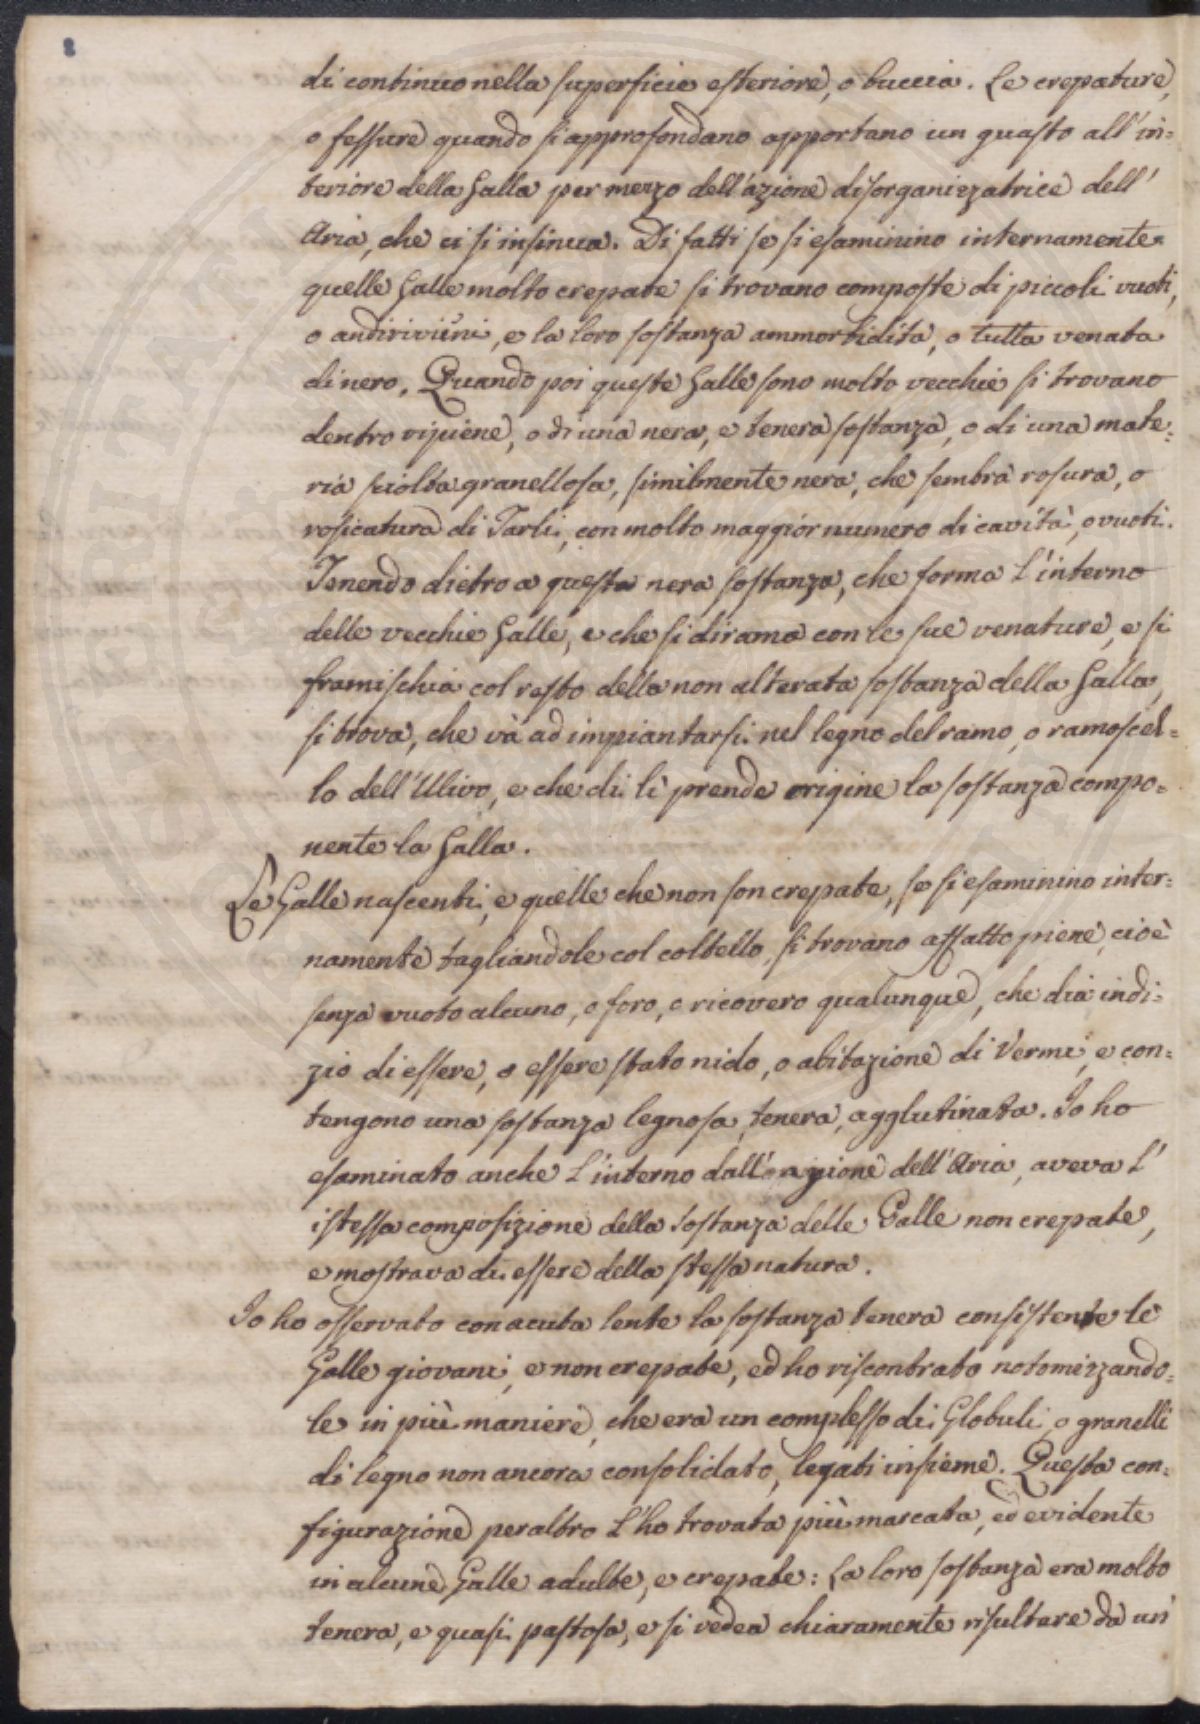 8
di continuo nella superficie esteriore, o buccia. Le crepature,
o fessure quando si approfondano apportano un guasto all'in=
teriore della Galla per mezzo dell'azione disorganizzatrice dell'
Aria, che ci si insinua. Di fatti se si esaminino internamente
quelle Galle molto crepate si trovano composte di piccoli vuoti,
o andirivieni, e la loro sostanza ammorbidita, o tutta venata
di nero. Quando poi queste Galle sono molto vecchie si trovano
dentro ripiene, o di una nera, e tenera sostanza, o di una mate=
ria sciolta granellosa, similmente nera, che sembra rosura, o
rosicatura di Tarli, con molto maggior numero di cavità, o vuoti.
Tenendo dietro a questa nera sostanza, che forma l'interno
delle vecchie Galle, e che si dirama con le sue venature, e si
framischia col resto della non alterata sostanza della Galla,
si trova, che và ad impiantarsi nel legno del ramo, o ramoscel=
lo dell'Ulivo, e che di lì prende origine la sostanza compo=
nente la Galla.
Le Galle nascenti, e quelle che non son crepate, se si esaminino inter=
namente tagliandole col coltello, si trovano affatto piene, cioè
senza vuoto alcuno, o foro, o ricovero qualunque, che dia indi=
zio di essere, o essere stato nido, o abitazione di Vermi, e con=
tengono una sostanza legnosa, tenera, agglutinata. Io ho
esaminato anche l'interno dall' dell'Aria, aveva l'
istessa composizione della sostanza delle Galle non crepate,
e mostrava di essere della stessa natura.
Io ho osservato con acuta lente la sostanza tenera consistente le
Galle giovani, e non crepate, ed ho riscontrato notomizzando=
le in più maniere, che era un complesso di Globuli, o granelli
di legno non ancora consolidato, legati insieme. Questa con=
figurazione peraltro l'ho trovata più marcata, ed evidente
in alcune Galle adulte, e crepate: La loro sostanza era molto
tenera, e quasi pastosa, e si vedea chiaramente risultare da un